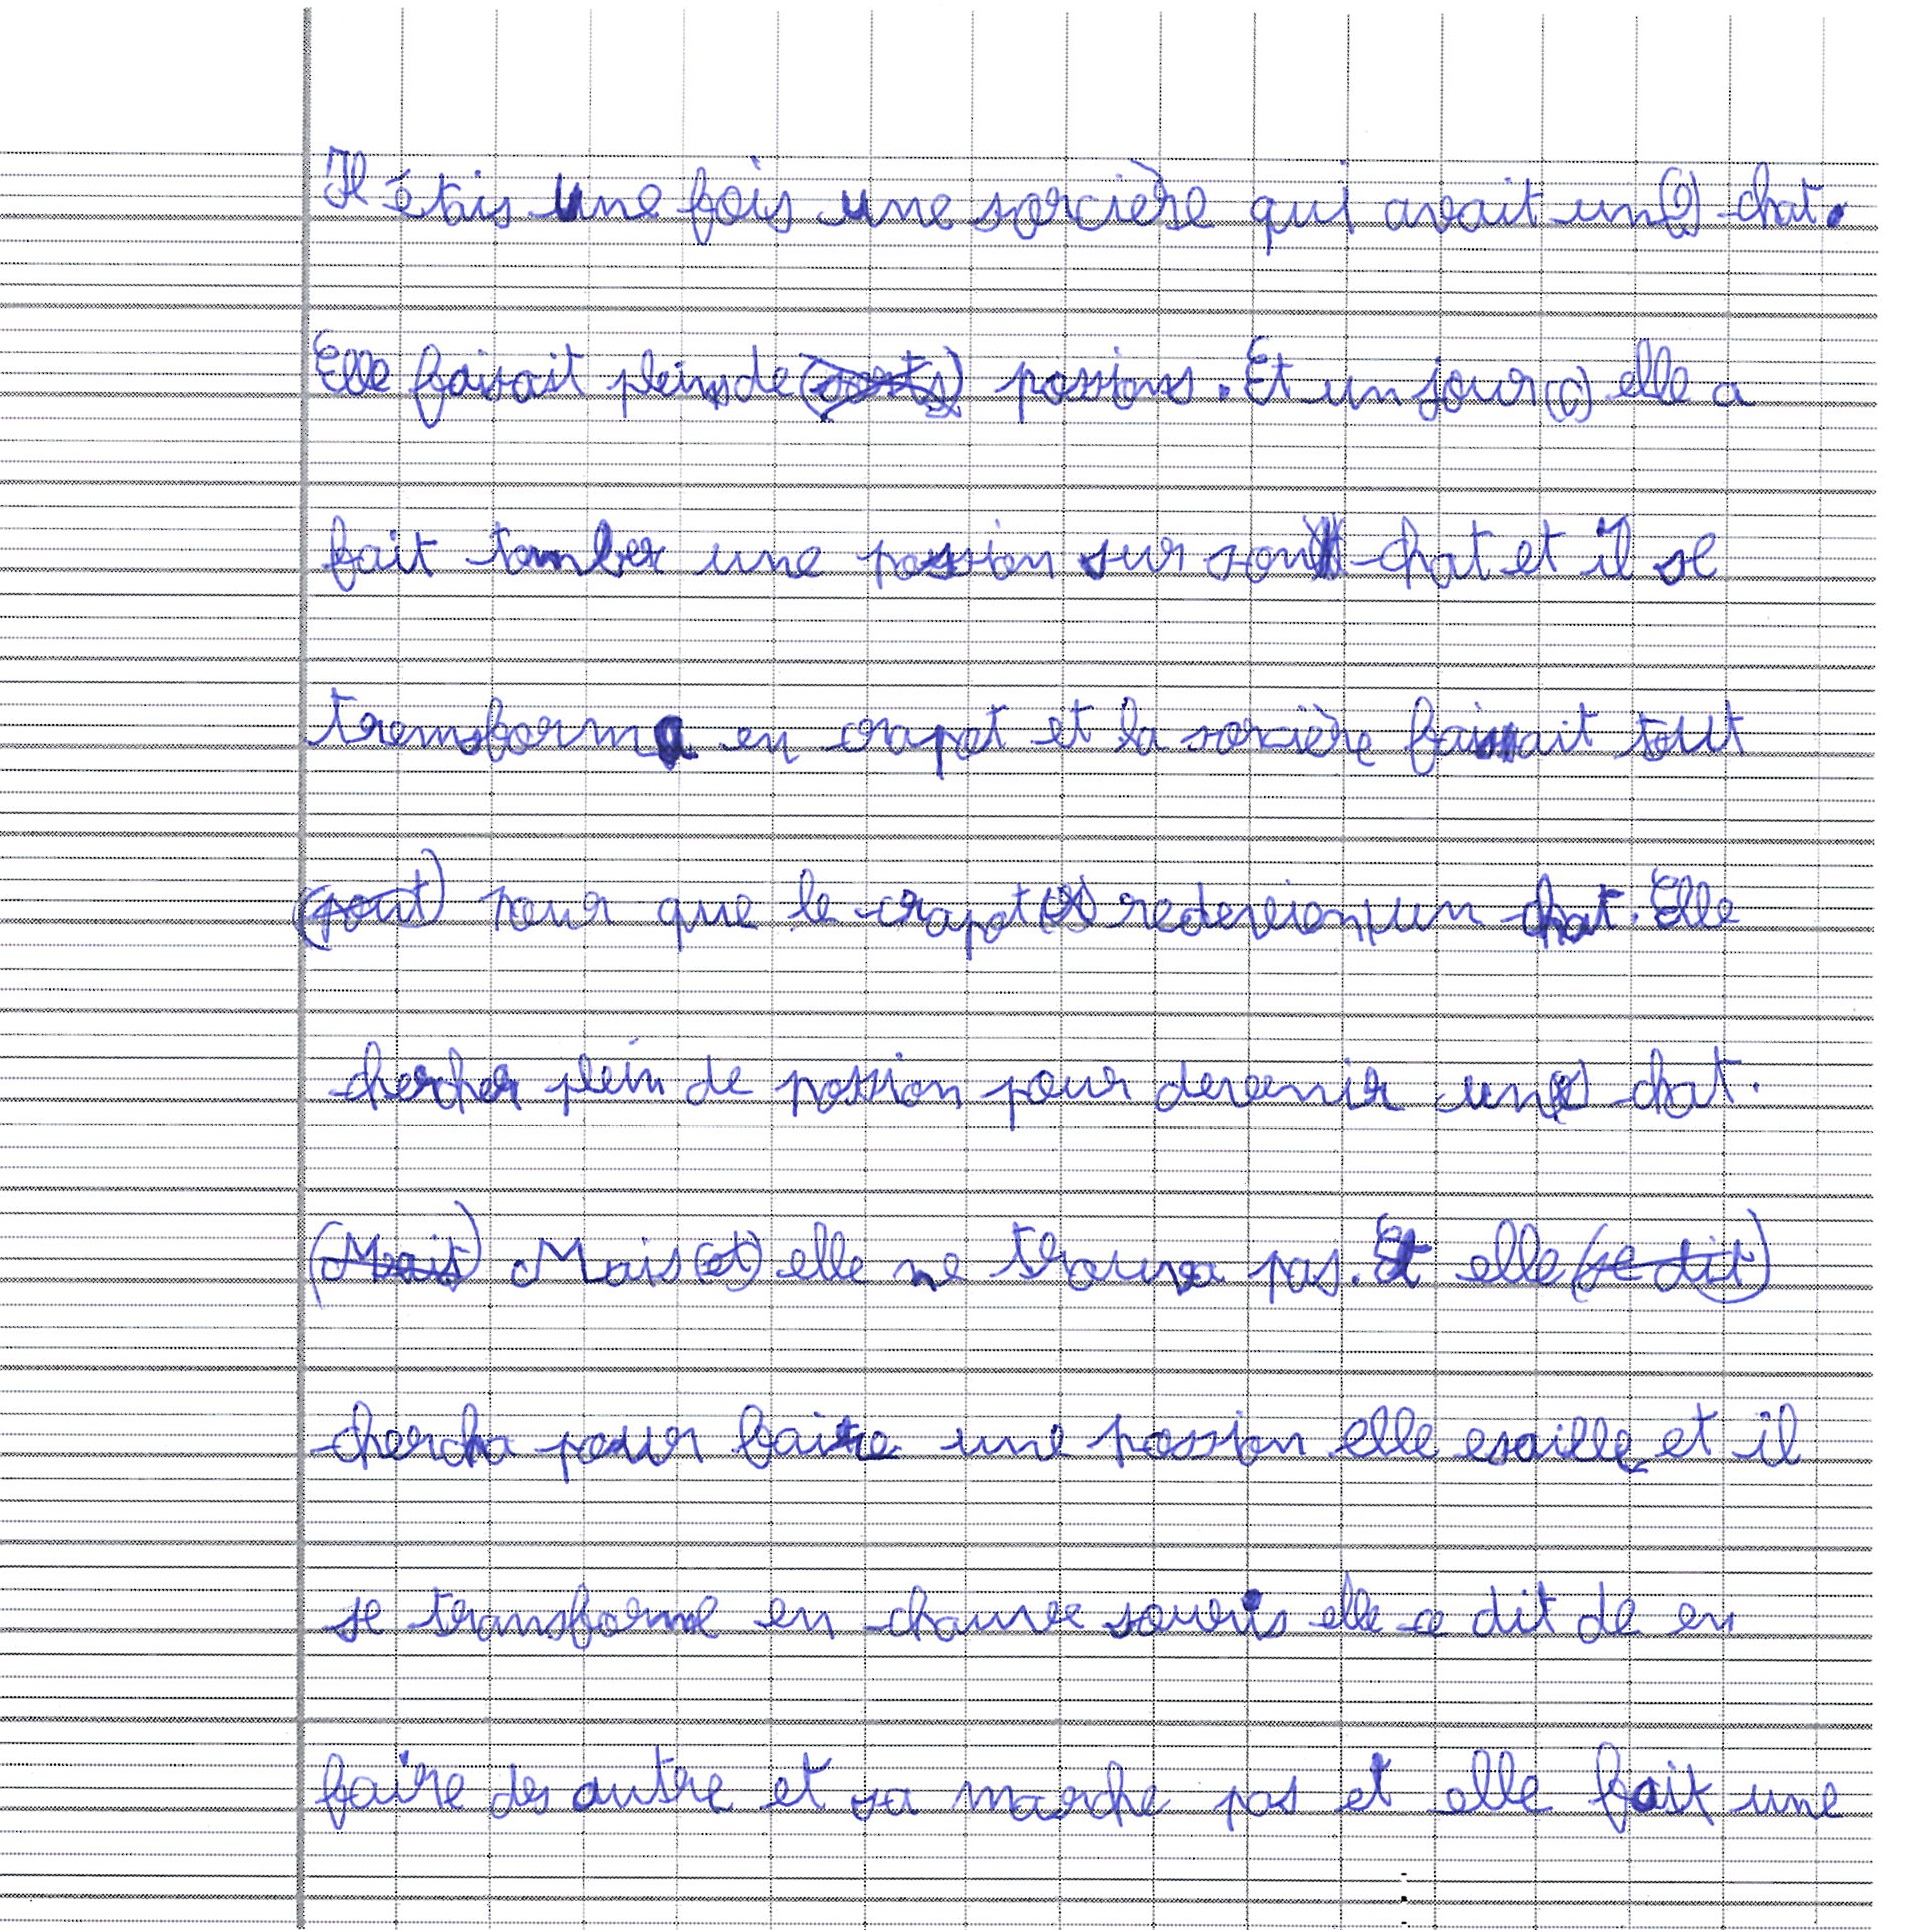 Il étais une fois une sorcière qui avait un(e) chat.
Elle faisait pleins de (sorts) possions. Et un jour(c) elle a
fait tomber une possion sur son chat et il se
transforma en crapot et la sorcière faisait tout
(pout) pour que le crapot redevien un chat. Elle
chercher plein de possion pour devenir un chat.
(Mais) Mais(et) elle ne trouva pas. Et elle (se dit)
chercha pour faire une possion elle esaille et il
se transforme en chauve souris elle ce dit de en
faire des autre et sa marche pas et elle fait une